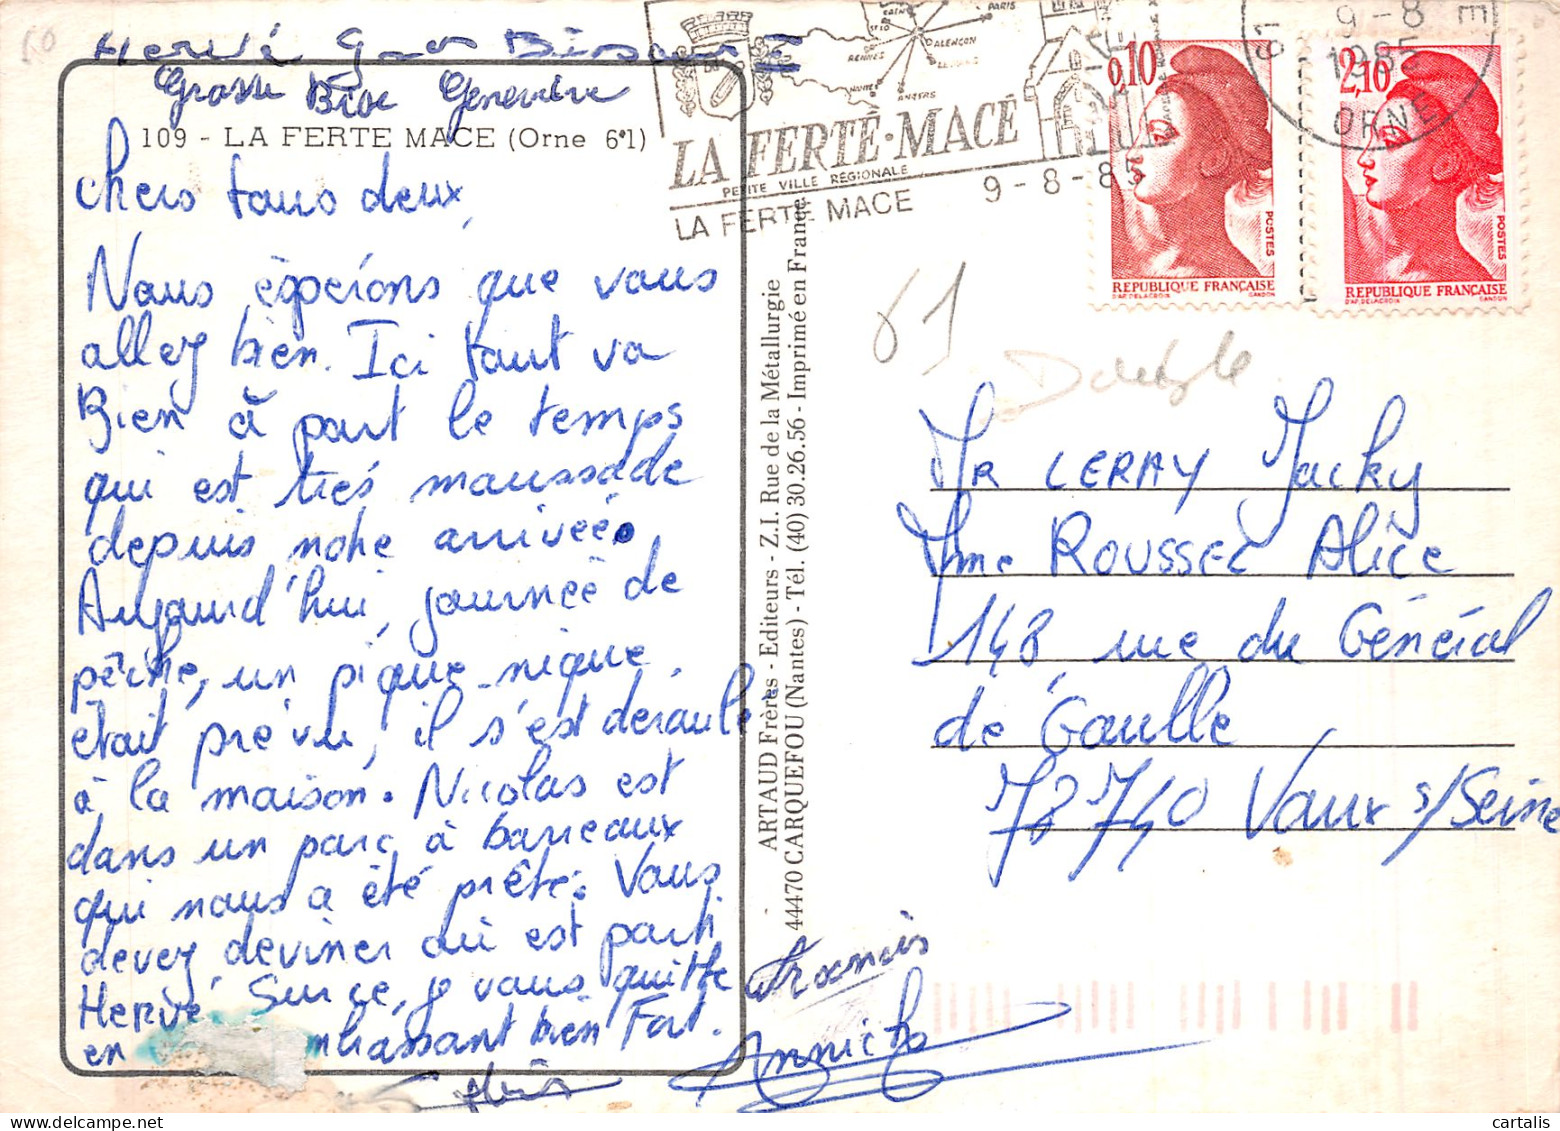 Hervé
Grosse Bise Geneviève
109 - LA FERTE MACE (Orne 61)
Chers tous deux,
Nous éspérons que vous
allez bien. Ici tout va
Bien à part le temps
qui est très maussade
depuis notre arrivée.
Aujourd'hui, journée de
pêche, un pique-nique
était prévu, il s'est déroulé
à la maison. Nicolas est
dans un parc à barreaux
qui nous a été prêté. Vous
devez deviner où est parti
Hervé. Sur ce, je vous quitte
en mbrassant bien Fort.
Francis
Annick
ARTAUD Frères - Editeurs - Z.I. Rue de la Métallurgie
44470 CARQUEFOU (Nantes) - Tél. (40) 30.26.56 - Imprimé en France
PARIS
ALENÇON
RENNES
ANGERS
LA FERTÉ-MACÉ
PETITE VILLE RÉGIONALE
LA FERTE MACE 9-8-85
61
9-8
1985
ORNE
0,10
POSTES
REPUBLIQUE FRANÇAISE
D'AP. DELACROIX GANDON
2,10
POSTES
REPUBLIQUE FRANÇAISE
D'AP. DELACROIX GANDON
61
Mr LERAY Jacky
Mme ROUSSEL Alice
148 rue du Général
de Gaulle
78740 Vaux s/Seine
cartalis